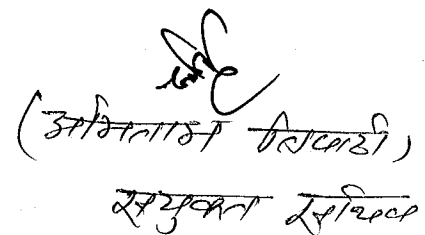 (अमिताभ त्रिपाठी)
संयुक्त सचिव